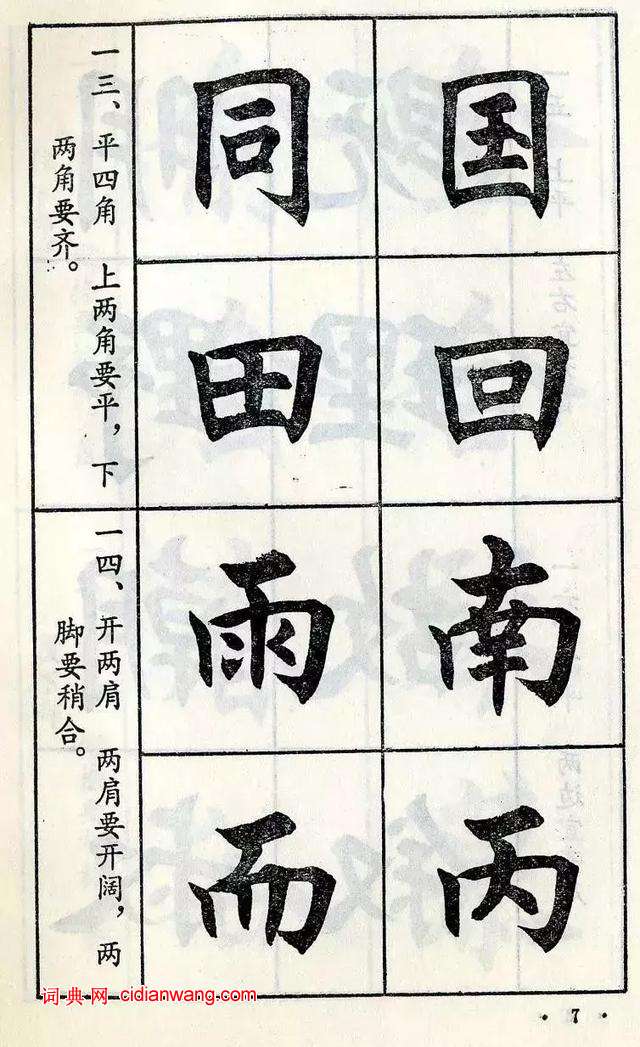 国
同
一三、平四角　上两角要平，下
两角要齐。
回
田
南
雨
一四、开两肩　两肩要开阔，两
脚要稍合。
丙
而
词典网 cidianwang.com
· 7 ·